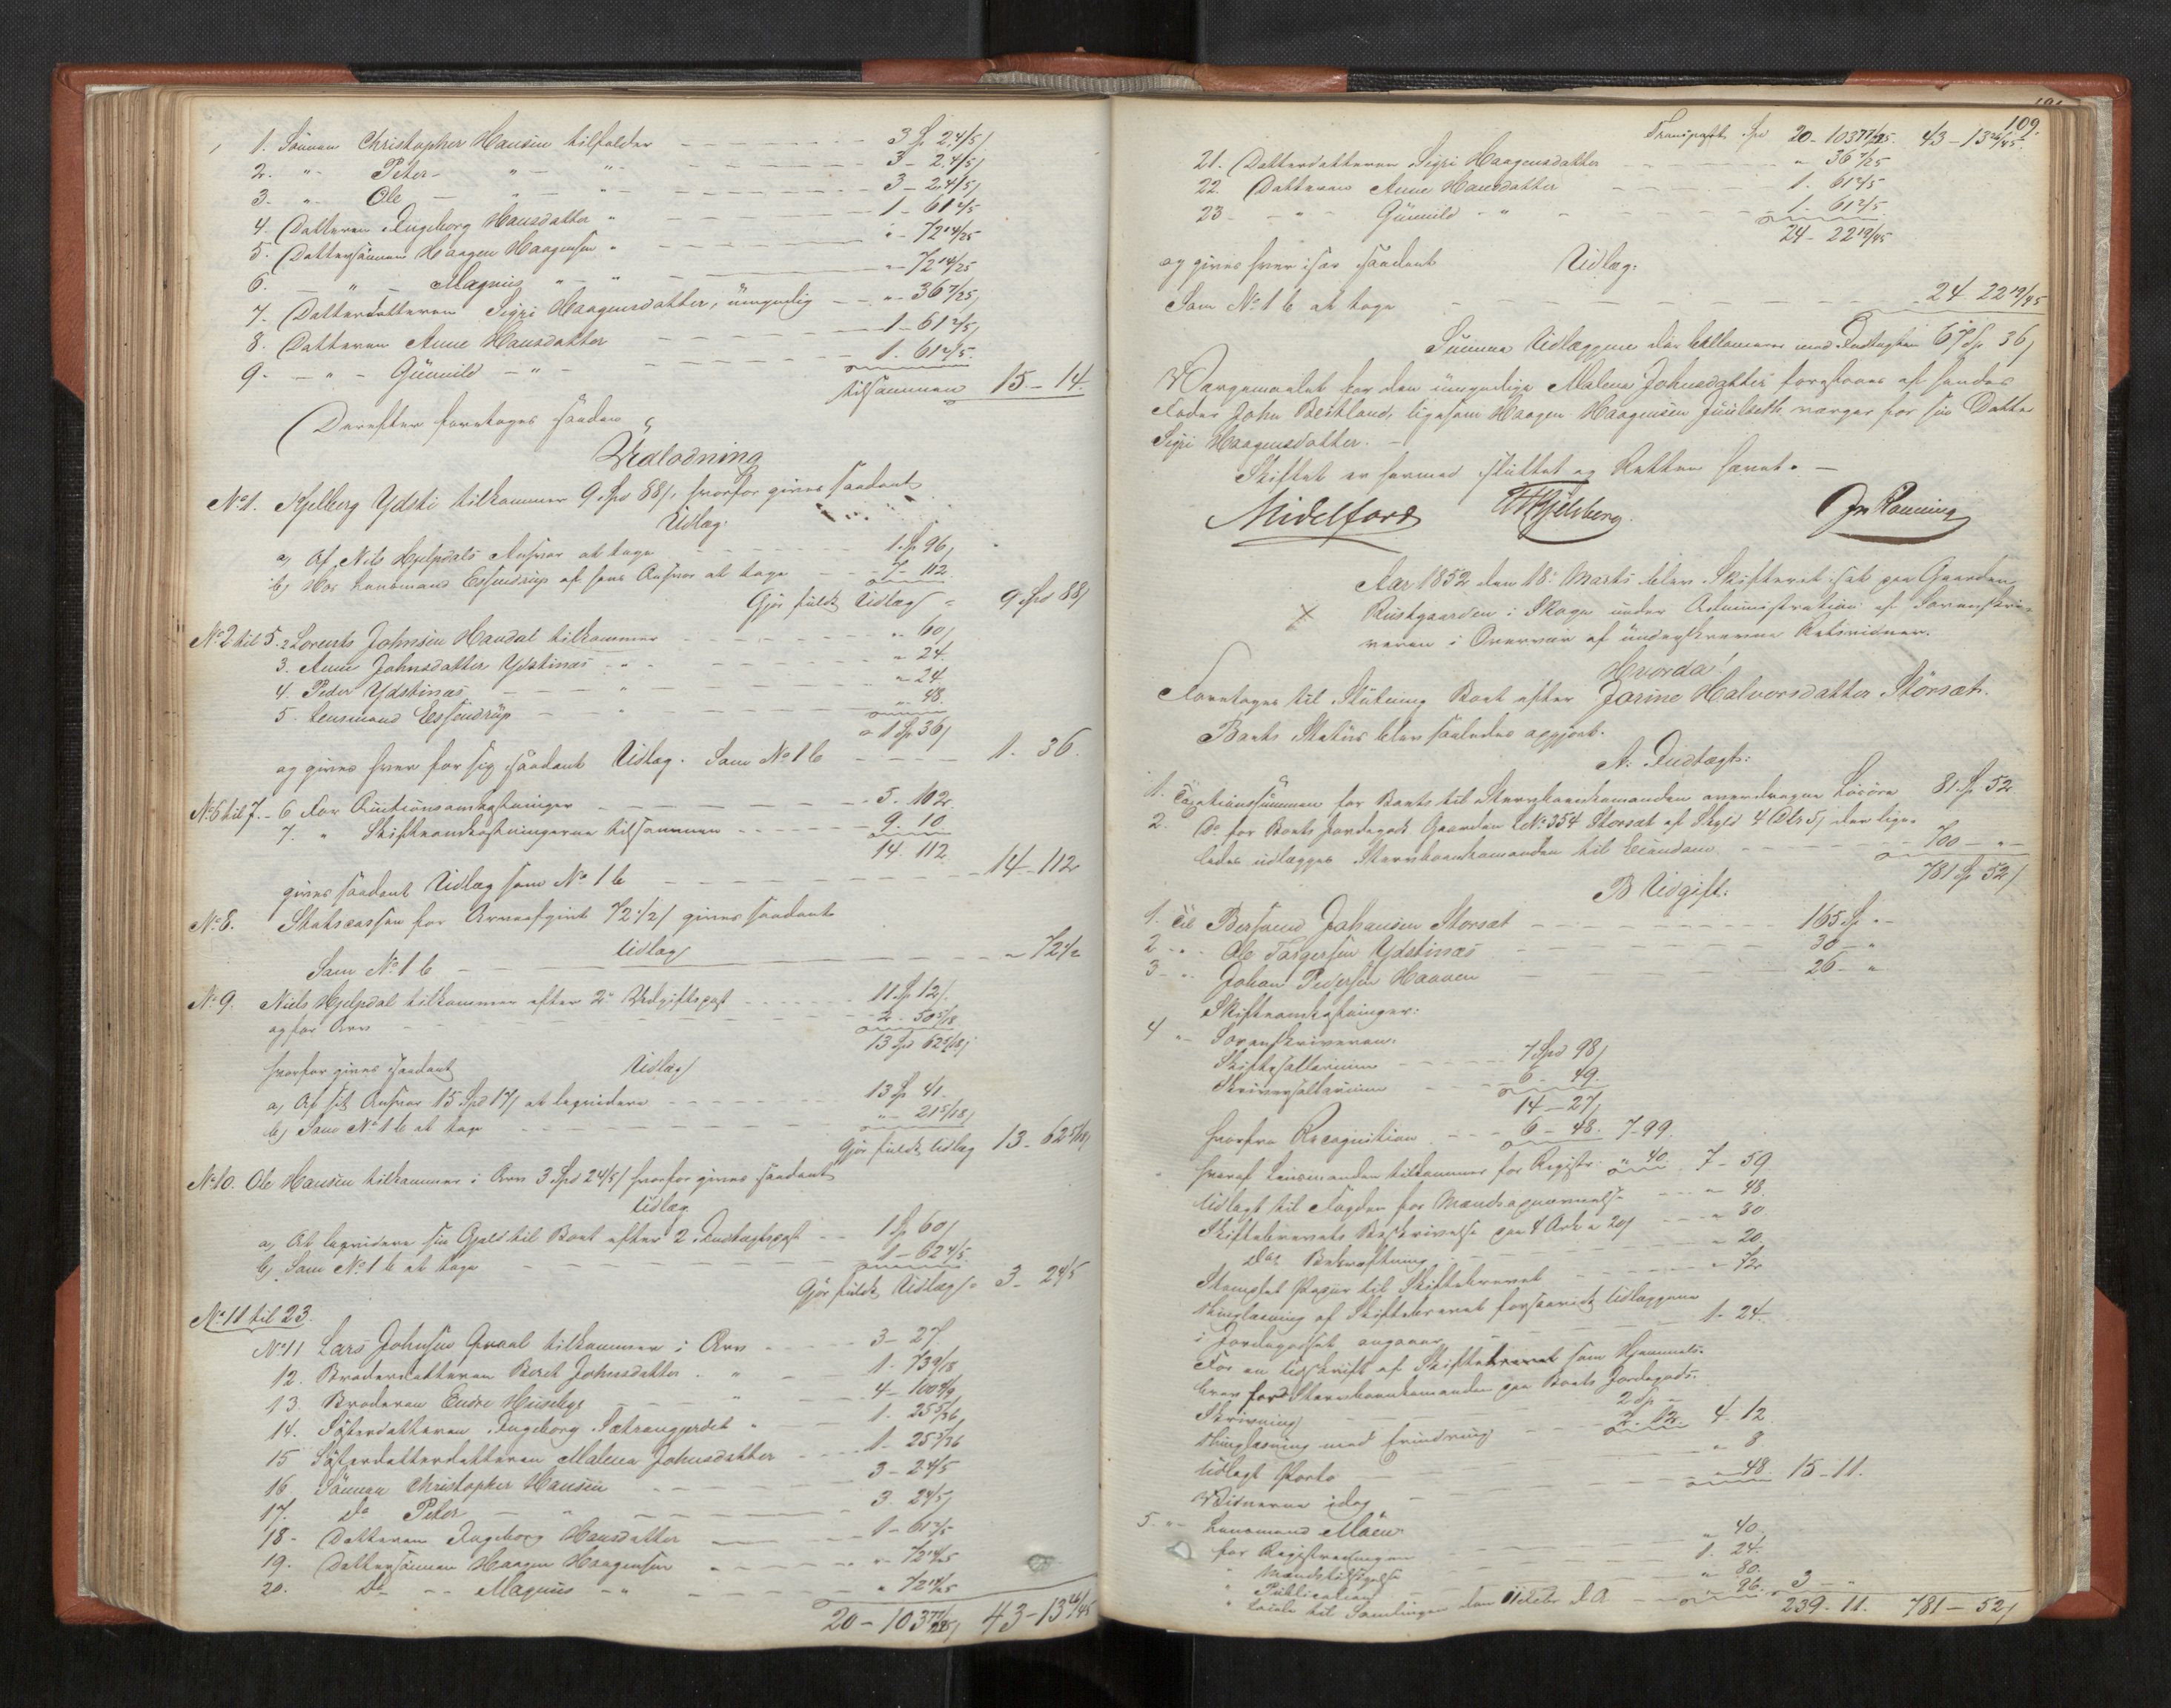 1. Sönnen Christopher Hansen tilfalder — 3 Sp 2 4/5 /
2. " - Peter - " - " - 3 - 2 4/5 /
3. " - Ole - " - " - 3 - 2 4/5 /
4. Datteren Ingeborg Hansdatter " — 1 - 61 2/5
5. Dattersönnen Haagen Haagensen " — " - 72 14/25
6. - " - Magnus " - " — " - 72 14/25
7. Datterdatteren Sigri Haagensdatter, umyndig — " - 36 7/25 /
8. Datteren Anne Hansdatter — 1 - 61 2/5 /
9. - " - Gunnild - " - — 1. 61 2/5.
tilsammen 15 - 14.
Derefter foretoges saadan
Udlodning
No 1. Kjelberg Ydsti tilkommer 9 Spd 88 /, hvorfor gives saadant
Udlæg:
a, Af Nils Hjelpdals Ansvar at tage — 1 Sp 96 /
b, Hos Lensmand Essendrup af hans Ansvar at tage — 7 - 112
Gjør fuldt Udlæg = 9 Spd 88 /
No 2 til 5. 2 Lorents Johnsen Haudal tilkommer — " 60 /
3. Anne Johnsdatter Ydstinæs " — " 24
4. Peder Ydstinæs — " — " 24
5. Lensmand Essendrup — " — " 48.
1 Sp 36 /
og gives hver for sig saadant Udlæg. Som No 1 b — 1. 36.
No 6 til 7. - 6 For Auctionsomkostninger — 5. 102.
7. " Skifteomkostningerne tilsammen — 9. 10
14. 112.
gives saadant Udlæg som No 1 b — 14 - 112
No 8. Statscassen for Arveafgivt 72 1/2 / gives saadant
Udlæg
Som No 1 b — " 72 1/2
No 9. Niels Hjelpdal tilkommer efter 2 Udgiftspost — 11 Sp 12 /
og for Arv — 2 - 50 5/18
13 Spd 62 5/18 /
hvorfor gives saadant Udlæg
a, Af sit Ansvar 15 Spd 17 / at liqvidere — 13 Sp 41.
b, Som No 1 b at tage — " - 21 5/18 /
Gjør fuldt Udlæg 13 - 62 5/18 /
No 10. Ole Hansen tilkommer i Arv 3 Spd 2 4/5 / hvorfor gives saadant
Udlæg
a, At liqvidere sin Gjæld til Boet efter 2 Indtægtspost — 1 Sp 60 /
b, Som No 1 b at tage — 1 - 62 4/5
Gjør fuldt Udlæg = 3 - 2 4/5
No 11 til 23.
No 11 Lars Johnsen tilkommer i Arv — 3 - 27
12. Broderdatteren Berit Johnsdatter " — 1. 73 9/18
13. Broderen Endre Huseby " — 4 - 100 4/9
14. Søsterdatteren Ingeborg Sætrangjerdet " — 1. 25 5/36
15 Søsterdatterdatteren Malena Johnsdatter — 1 - 25 5/36
16. Sönnen Christopher Hansen — 3 - 2 4/5
17. Do Peter — 3. 2 4/5 /
18 - Datteren Ingeborg Hansdatter — 1 - 61 2/5
19. Dattersönnen Haagen Haagensen — " 72 14/25
20. Do - - Magnus - " — " 72 14/25
20 - 103 77/225 / 43 - 13 26/45
109.
Transport Spd 20 - 103 77/225. 43 - 13 26/45.
21. Datterdatteren Sigri Haagensdatter — " 36 7/25
22. Datteren Anne Hansdatter — 1. 61 2/5
23 - - " - Gunnild - " — 1. 61 2/5.
24 - 22 19/45
og gives hver især saadant Udlæg:
Som No 1 b at tage — 24 22 19/45
Summa Udlæggene der ballancerer med Indtægten 67 Sp 36 /
Værgemaalet for den umyndige Malena Johnsdatter forestaaes af hendes
Fader John Beitland, ligesom Haagen Haagensen Juulseth værger for sin Datter
Sigri Haagensdatter. -
Skiftet er hermed sluttet og Retten hævet. -
Midelfard Kjelsberg. Rønning
Aar 1852 den 18 Marts blev Skifteret sat paa Gaarden
Rustgaarden i Skogn under Administration af Sorenskri-
veren i Overvær af undeskrevne Retsvidner.
Hvorda!
Foretoges til Slutning Boet efter Jorine Halvorsdatter Störset.
Boets Status blev saaledes opgjort.
A. Indtægt:
1. Taxationssummen for Boets til Stervboenkemanden overdragne Løsøre 81 Sp 52
2. Do for Boets Jordegods Gaarden L No 354 Storset af Skyld 4 Dlr 5 / der lige-
ledes udlægges Stervboenkemanden til Eiendom — 700 - " -
781 Sp 52 /
B Udgift:
1. Til Bersvend Johansen Storset — 165 Sp " -
2 - " Ole Torgersen Ydstinæs — 30 - "
3 - " Johan Pedersen Haaven — 26 - "
Skifteomkostninger:
4 " - Sorenskriveren.
Skiftesallarium — 7 Spd 98 /
Skriversallarium — 6 - 49.
14 - 27 /
hvorfra Recognition — 6 - 48. 7 - 99.
hvoraf Lensmanden tilkommer for Registr. " 40 7 - 59
Udlagt til Fogden for Mandsopnævnelse — " 48.
Skiftebrevets Beskrivelse paa 4 Ark a 20 / — " 80
dets Bekræftning — " 20.
Stemplet Papir til Skiftebrevet — " 72
Thinglæsning af Skiftebrevet forsaavidt Udlæggene
i Jordegodset angaaer — 1 - 24.
For en Udskrift af Skiftebrevet som Hjemmels-
brev for Stervboenkemanden paa Boets Jordegods.
Skrivning — 2 Sp -
Thinglæsning med Erindring — 2. 12. 4. 12.
Udlagt Porto — " 8
Vidnerne idag — " 48 15 - 11.
5. " - Lensmand Moen.
for Registreringen — " 40.
" Mandstilsigelse — 1. 24.
" Publication — " 80.
" Locale til Samlingen den 11 Febr d A — " 96. 3 - "
239 - 11. 781 - 52 /